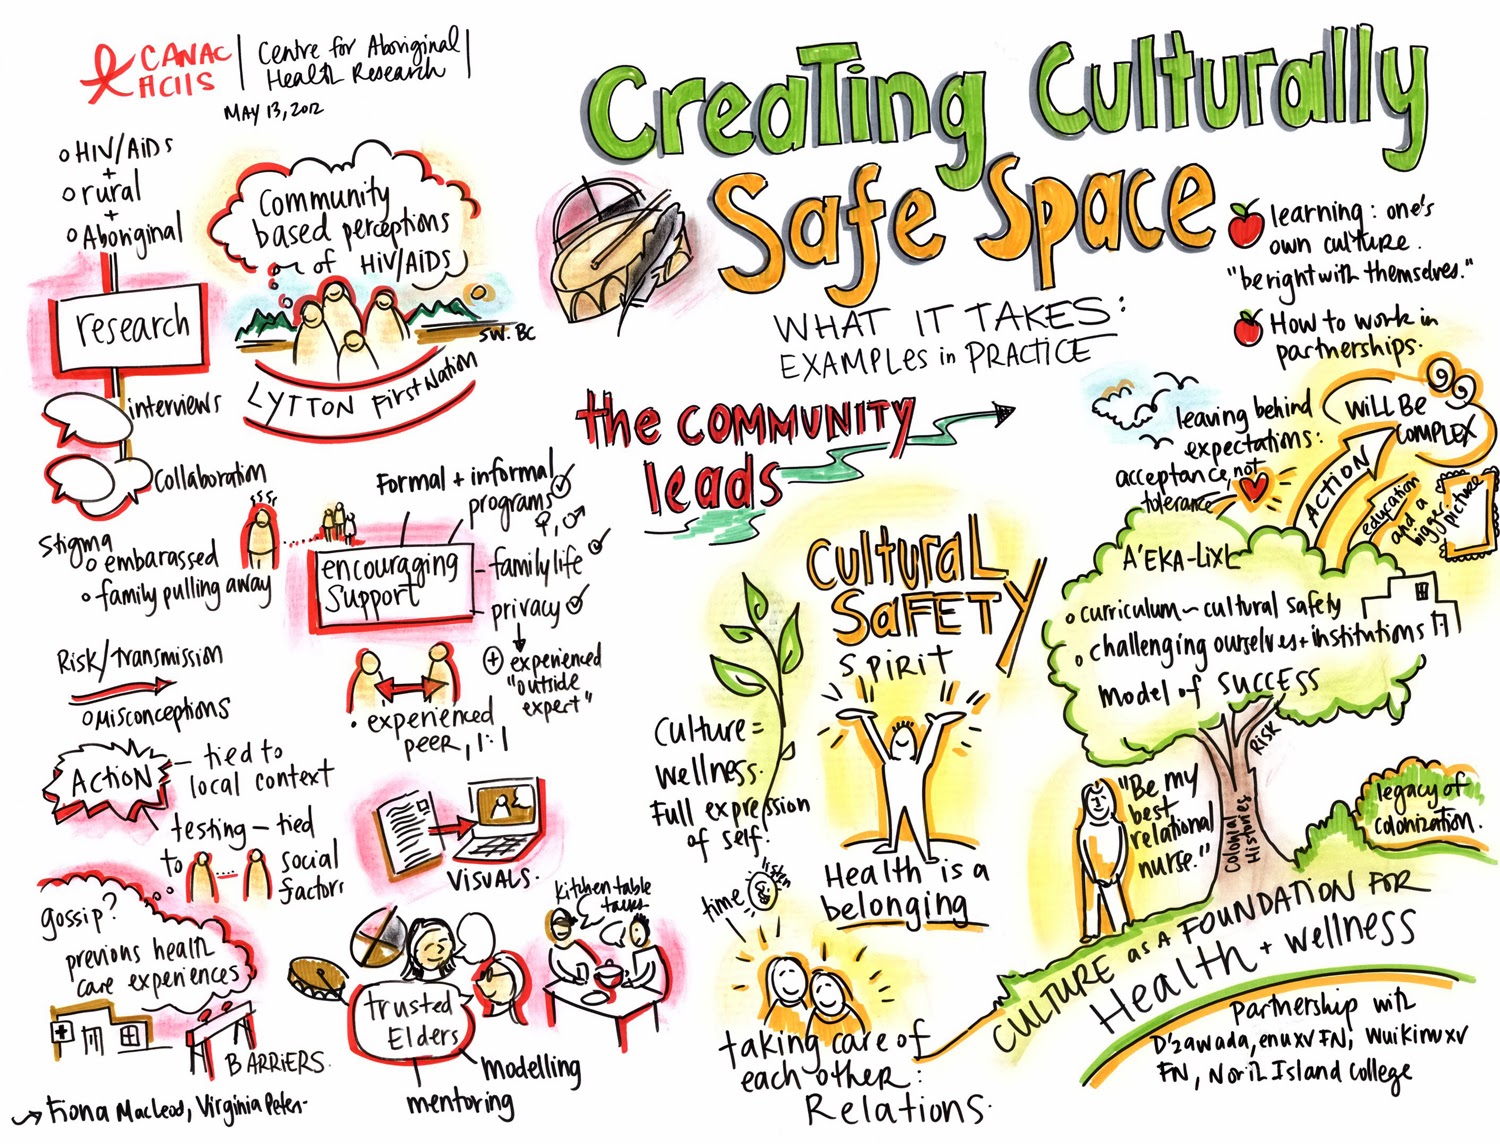 CANAC
ACIIS
Centre for Aboriginal
Health Research
MAY 13, 2012
Creating Culturally
Safe Space
WHAT IT TAKES:
EXAMPLES in PRACTICE
HIV/AIDS
+
rural
+
Aboriginal
research
interviews
Collaboration
Community
based perceptions
of HIV/AIDS
SW. BC
LYTTON First Nation
Stigma
embarassed
family pulling away
Formal + informal
programs
encouraging
Support
family life
privacy
+ experienced
"outside
expert"
experienced
peer, 1:1
Risk/Transmission
Misconceptions
ACTION
tied to
local context
testing - tied
to
social
factors
VISUALS.
gossip?
previous health
care experiences
BARRIERS.
kitchen table
talks
trusted
Elders
modelling
mentoring
Fiona MacLeod, Virginia Peter
the COMMUNITY
leads
Cultural
Safety
SPIRIT
Culture =
wellness.
Full expression
of self.
Health is a
belonging
time
listen
taking care of
each other:
Relations.
learning: one's
own culture.
"be right with themselves."
How to work in
partnerships.
leaving behind
expectations:
acceptance, not
tolerance
ACTION
WiLL BE
COMPLEX
education
and a
bigger
picture
A'EKA-LiXL
curriculum ~ cultural safety
challenging ourselves + institutions
Model of SUCCESS
RISK
Colonial
Histories
"Be my
best
relational
nurse."
legacy of
colonization.
CULTURE as a FOUNDATION FOR
Health + wellness
Partnership with
D'zawada,enuxv FN, Wuikinuxv
FN, North Island College